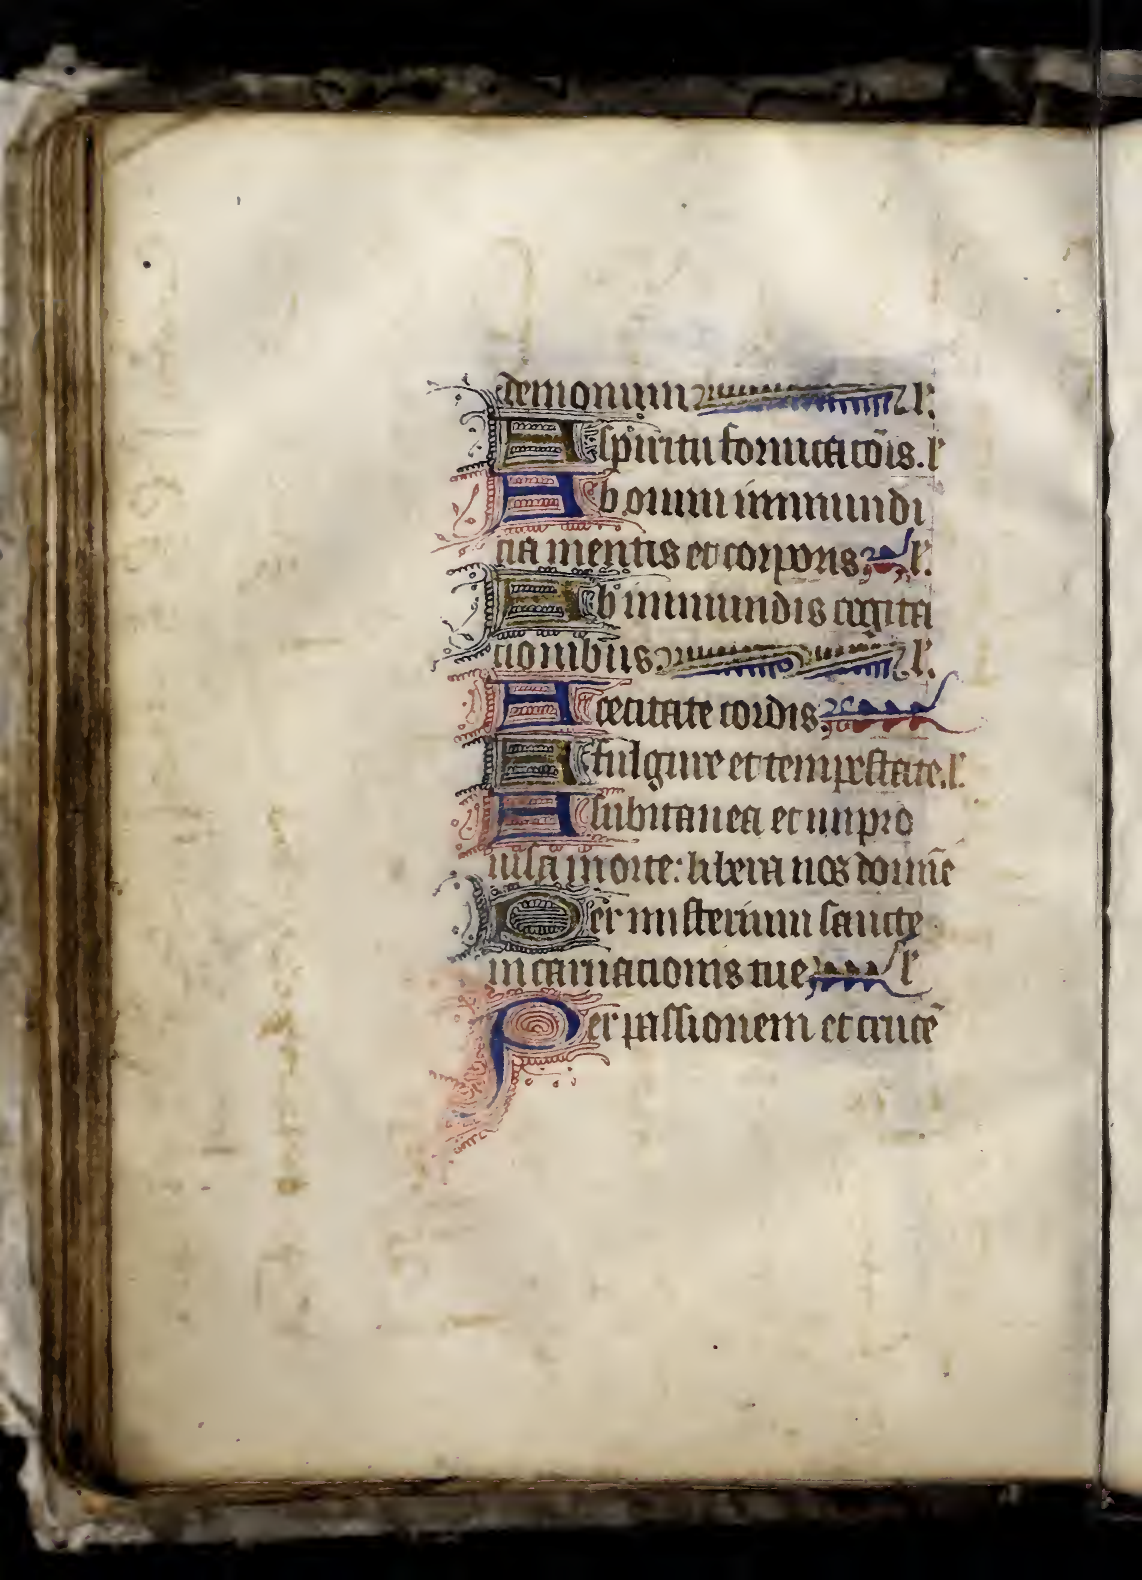 demonum l'.
A spiritu fornicacõis. l'
Ab omni immundi
cia mentis et corporis l'.
Ab immundis cogita
cionibus. l'.
A cecitate cordis
A fulgure et tempestate. l'.
A subitanea et impro
uisa morte: libera nos domĩe
Per misterium sancte
incarnacionis tue l'
Per passionem et crucẽ